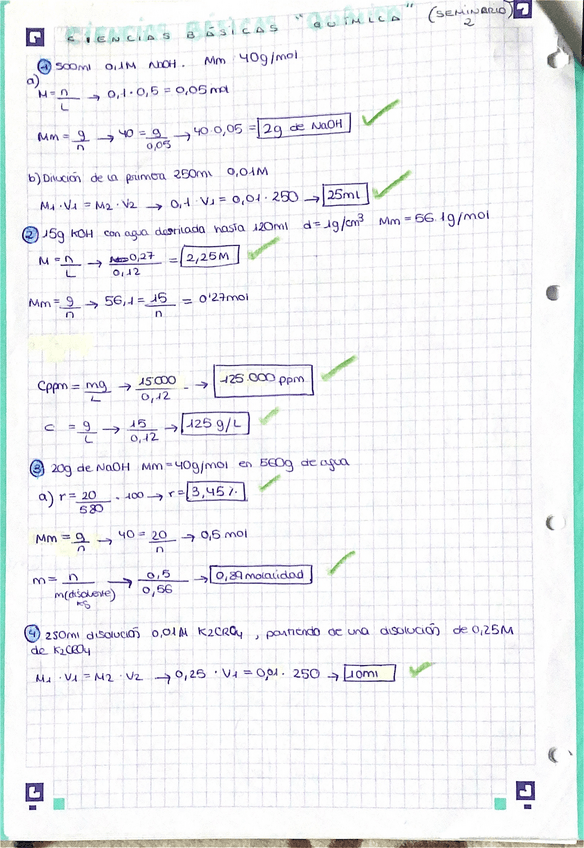 CIENCIAS BÁSICAS "QUÍMICA" (SEMINARIO) 2
1 500ml 0,1M NaOH. Mm 40g/mol
a)
M = n/L → 0,1 · 0,5 = 0,05 mol
Mm = g/n → 40 = g/0,05 → 40·0,05 = 2g de NaOH
b) Dilución de la primera 250ml 0,01M
M1 · V1 = M2 · V2 → 0,1 · V1 = 0,01 · 250 → 25ml
2 15g KOH con agua destilada hasta 120ml d = 1g/cm³ Mm = 56.1g/mol
M = n/L → 0,27/0,12 = 2,25M
Mm = g/n → 56,1 = 15/n = 0'27mol
Cppm = mg/L → 15000/0,12 → 125.000 ppm
C = g/L → 15/0,12 → 125 g/L
3 20g de NaOH Mm = 40g/mol en 560g de agua
a) r = 20/580 · 100 → r = 3,45%
Mm = g/n → 40 = 20/n → 0,5 mol
m = n/m(disolvente) kg → 0,5/0,56 → 0,89 molalidad
4 250ml disolución 0,01M K2CRO4, partiendo de una disolución de 0,25M
de K2CRO4
M1 · V1 = M2 · V2 → 0,25 · V1 = 0,01 · 250 → 10ml